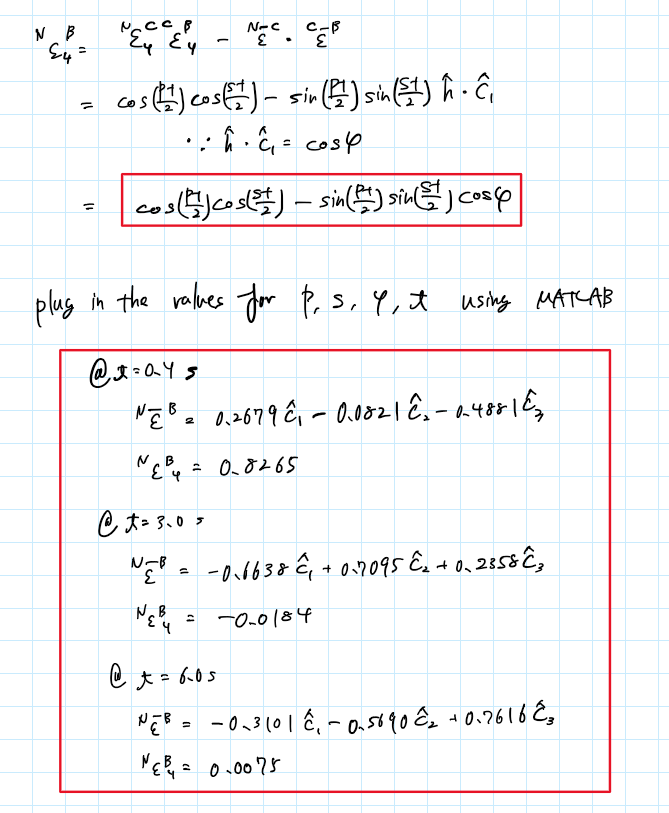 ᴺε₄ᴮ = ᴺε₄ᶜ ᶜε₄ᴮ - ᴺε̄ᶜ · ᶜε̄ᴮ
= cos(pt/2) cos(st/2) - sin(pt/2) sin(st/2) ĥ · Ĉ₁
∵ ĥ · Ĉ₁ = cosφ
= cos(pt/2) cos(st/2) - sin(pt/2) sin(st/2) cosφ
plug in the values for p, s, φ, t using MATLAB
@ t = 0.4 s
ᴺε̄ᴮ = 0.2679 Ĉ₁ - 0.0821 Ĉ₂ - 0.4881 Ĉ₃
ᴺε₄ᴮ = 0.8265
@ t = 3.0 s
ᴺε̄ᴮ = -0.6638 Ĉ₁ + 0.7095 Ĉ₂ + 0.2358 Ĉ₃
ᴺε₄ᴮ = -0.0184
@ t = 6.0 s
ᴺε̄ᴮ = -0.3101 Ĉ₁ - 0.5690 Ĉ₂ + 0.7616 Ĉ₃
ᴺε₄ᴮ = 0.0075